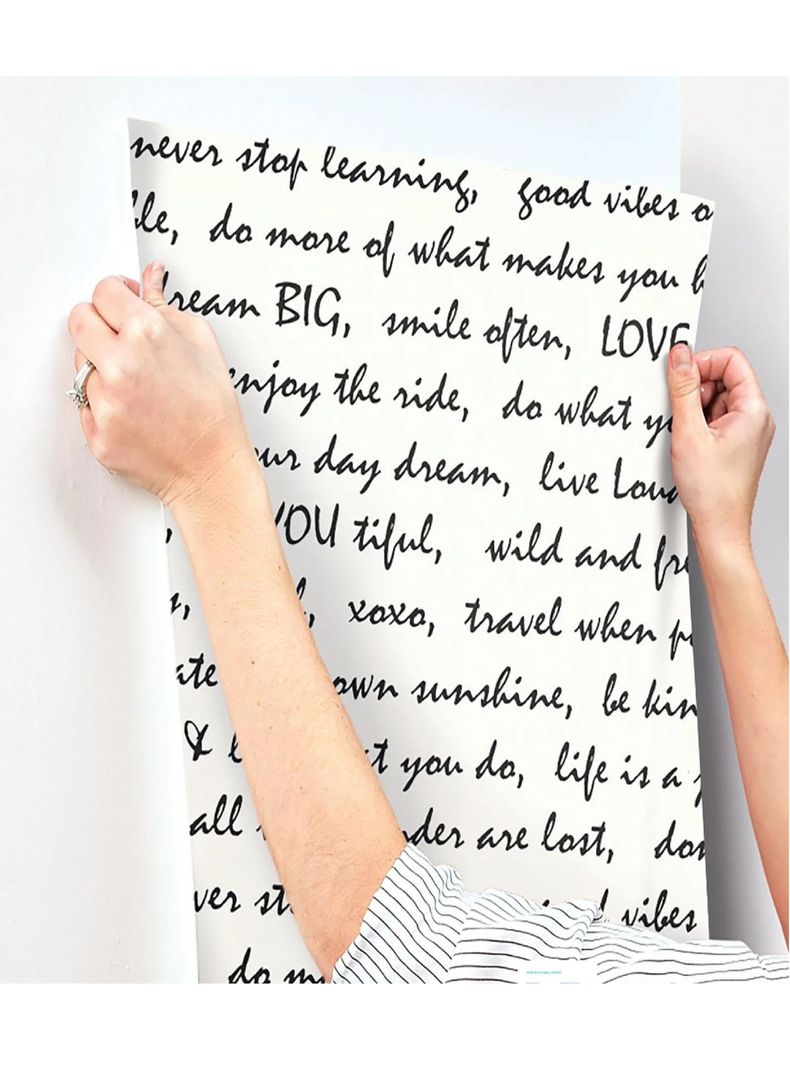 never stop learning, good vibes o
ble, do more of what makes you h
dream BIG, smile often, LOVE
enjoy the ride, do what yo
our day dream, live Loud
, YOU tiful, wild and fre
xoxo, travel when
ate own sunshine, be kin
& t you do, life is a
all der are lost, don
ver st vibes
do m